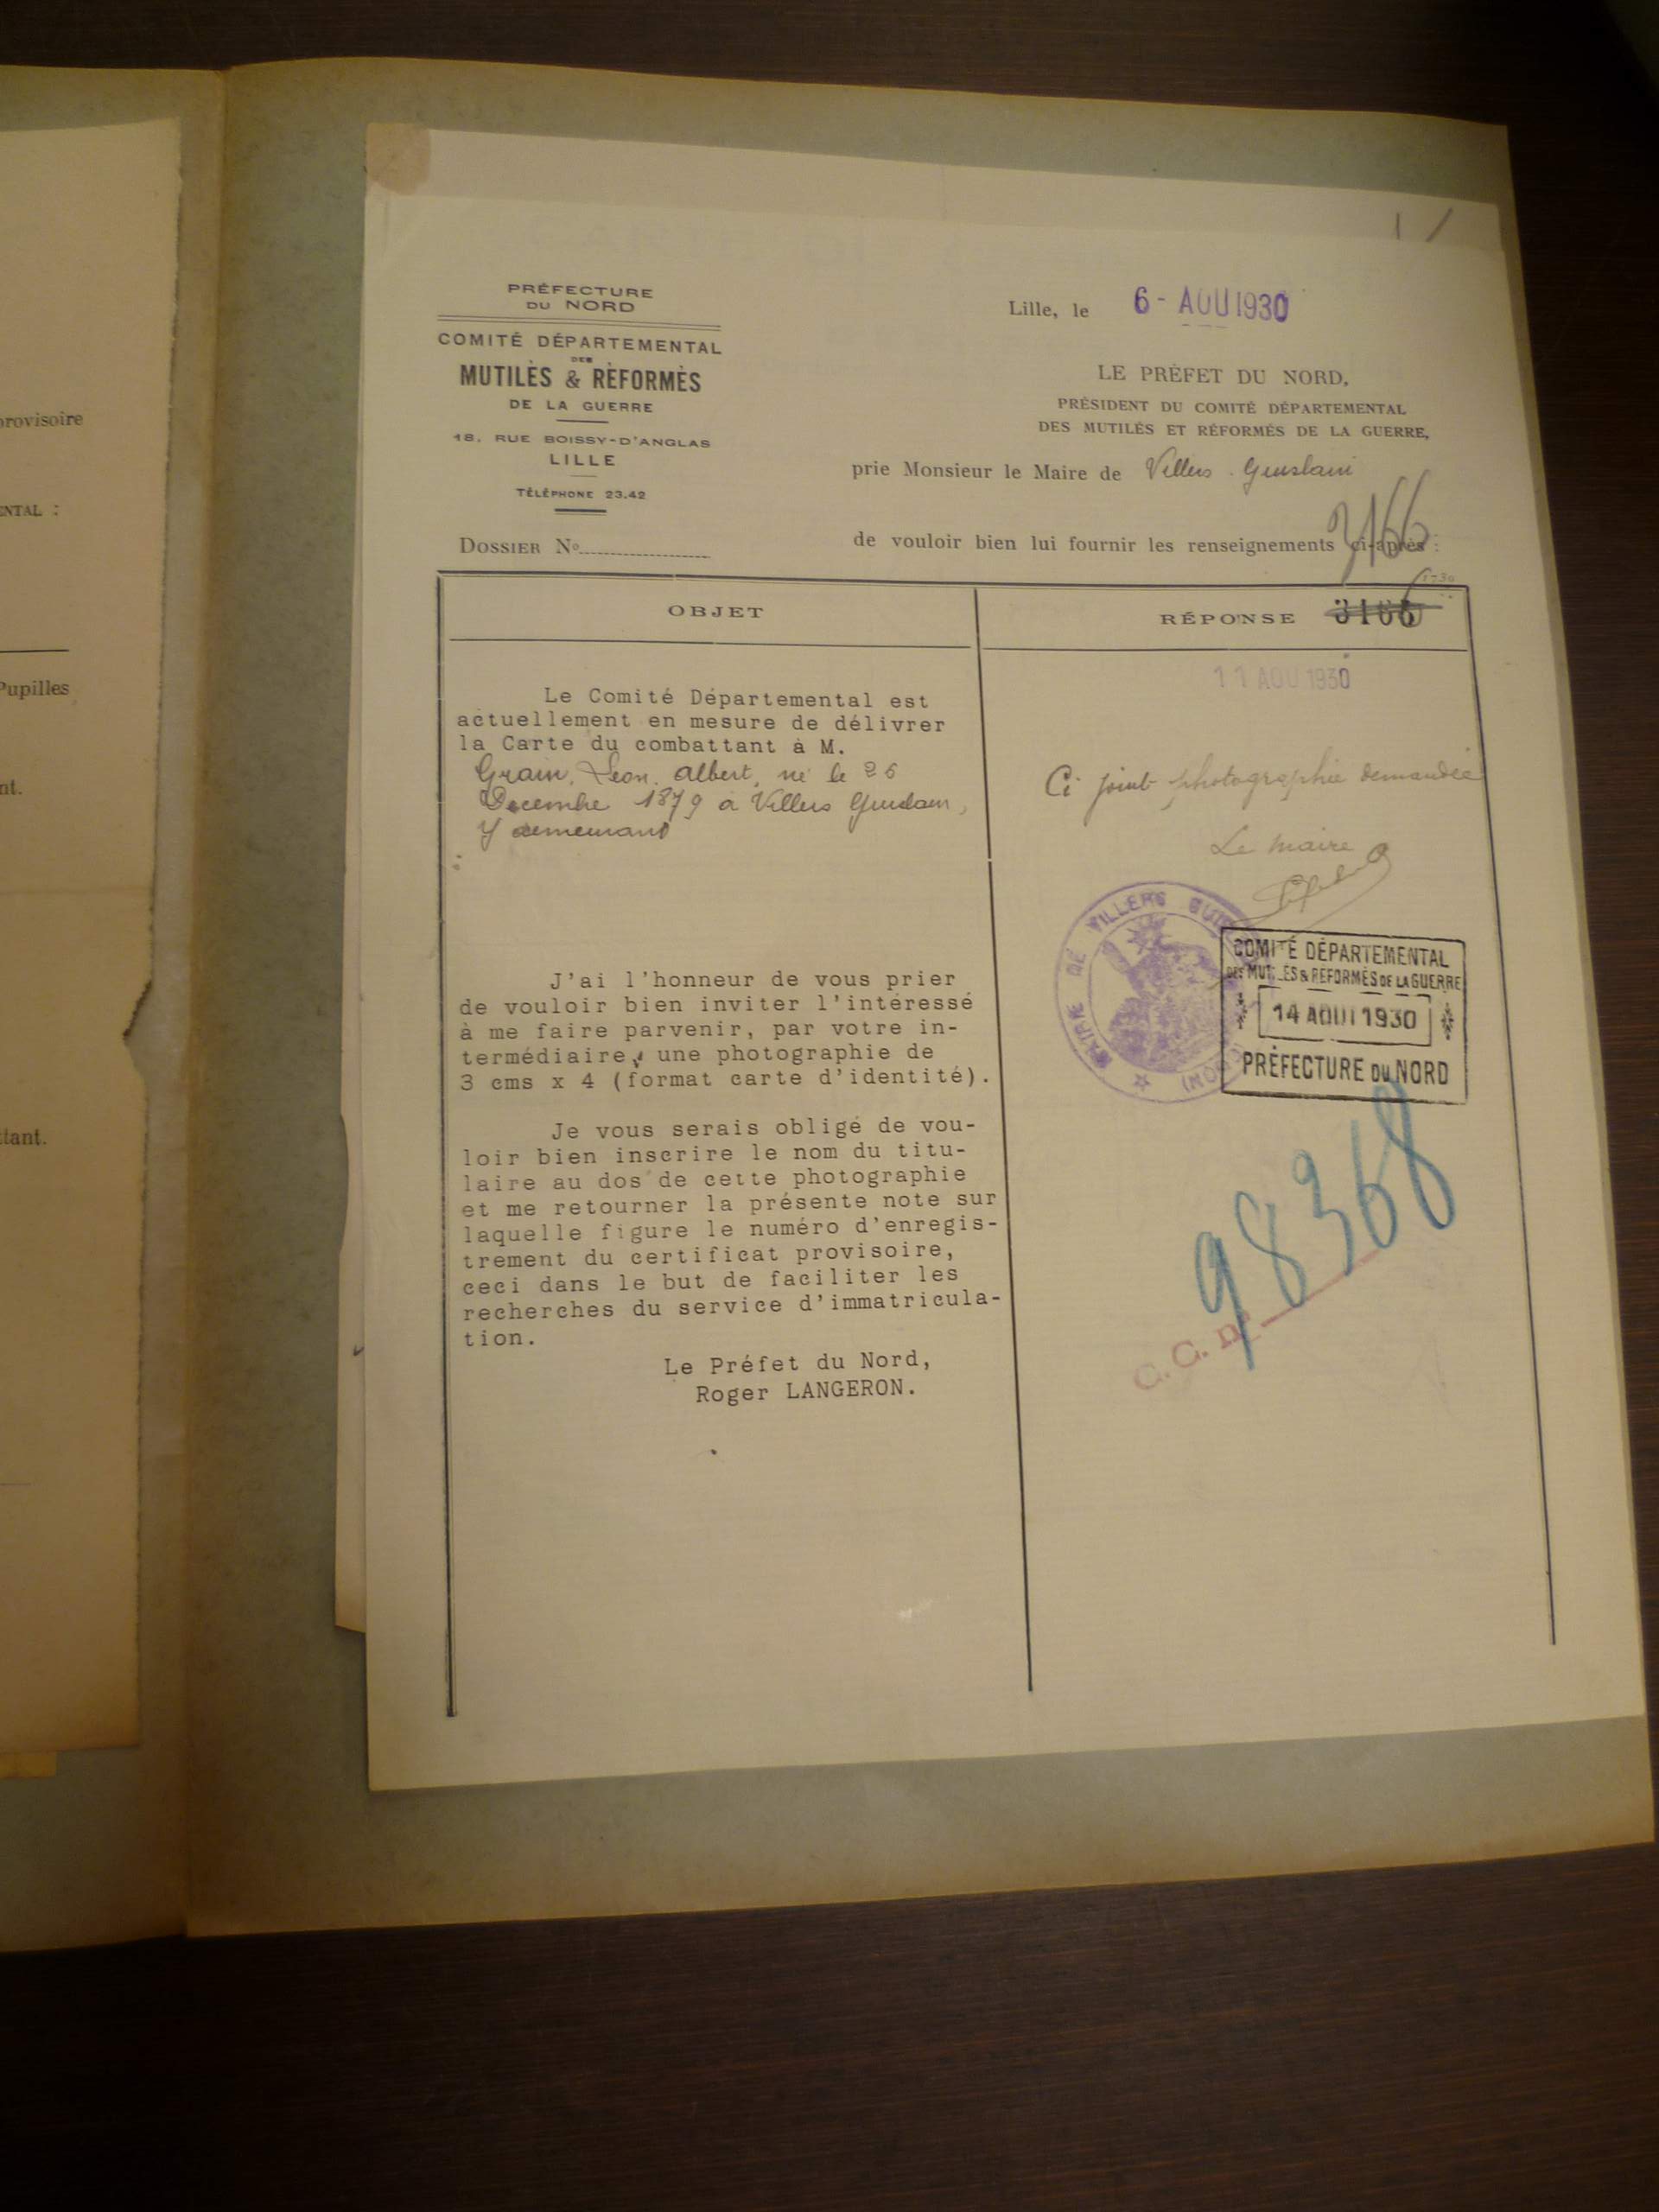 provisoire
ENTAL :
Pupilles
nt.
ttant.
PRÉFECTURE
DU NORD
COMITÉ DÉPARTEMENTAL
DES
MUTILÉS & RÉFORMÉS
DE LA GUERRE
18, RUE BOISSY-D'ANGLAS
LILLE
TÉLÉPHONE 23.42
DOSSIER No
Lille, le 6 - AOU 1930
LE PRÉFET DU NORD,
PRÉSIDENT DU COMITÉ DÉPARTEMENTAL
DES MUTILÉS ET RÉFORMÉS DE LA GUERRE,
prie Monsieur le Maire de Villers Guislain
de vouloir bien lui fournir les renseignements ci-après :
3166
OBJET
Le Comité Départemental est
actuellement en mesure de délivrer
la Carte du combattant à M.
Grain, Leon, Albert, né le 26
Decembre 1879 à Villers Guislain,
y demeurant
J'ai l'honneur de vous prier
de vouloir bien inviter l'intéressé
à me faire parvenir, par votre in-
termédiaire, une photographie de
3 cms x 4 (format carte d'identité).
Je vous serais obligé de vou-
loir bien inscrire le nom du titu-
laire au dos de cette photographie
et me retourner la présente note sur
laquelle figure le numéro d'enregis-
trement du certificat provisoire,
ceci dans le but de faciliter les
recherches du service d'immatricula-
tion.
Le Préfet du Nord,
Roger LANGERON.
RÉPONSE 3166
11 AOU 1930
Ci joint photographie demandée
Le maire
MAIRIE DE VILLERS GUIS
(NORD)
COMITÉ DÉPARTEMENTAL
DES MUTILÉS & RÉFORMÉS DE LA GUERRE
14 AOUT 1930
PRÉFECTURE DU NORD
98368
C.C. n°